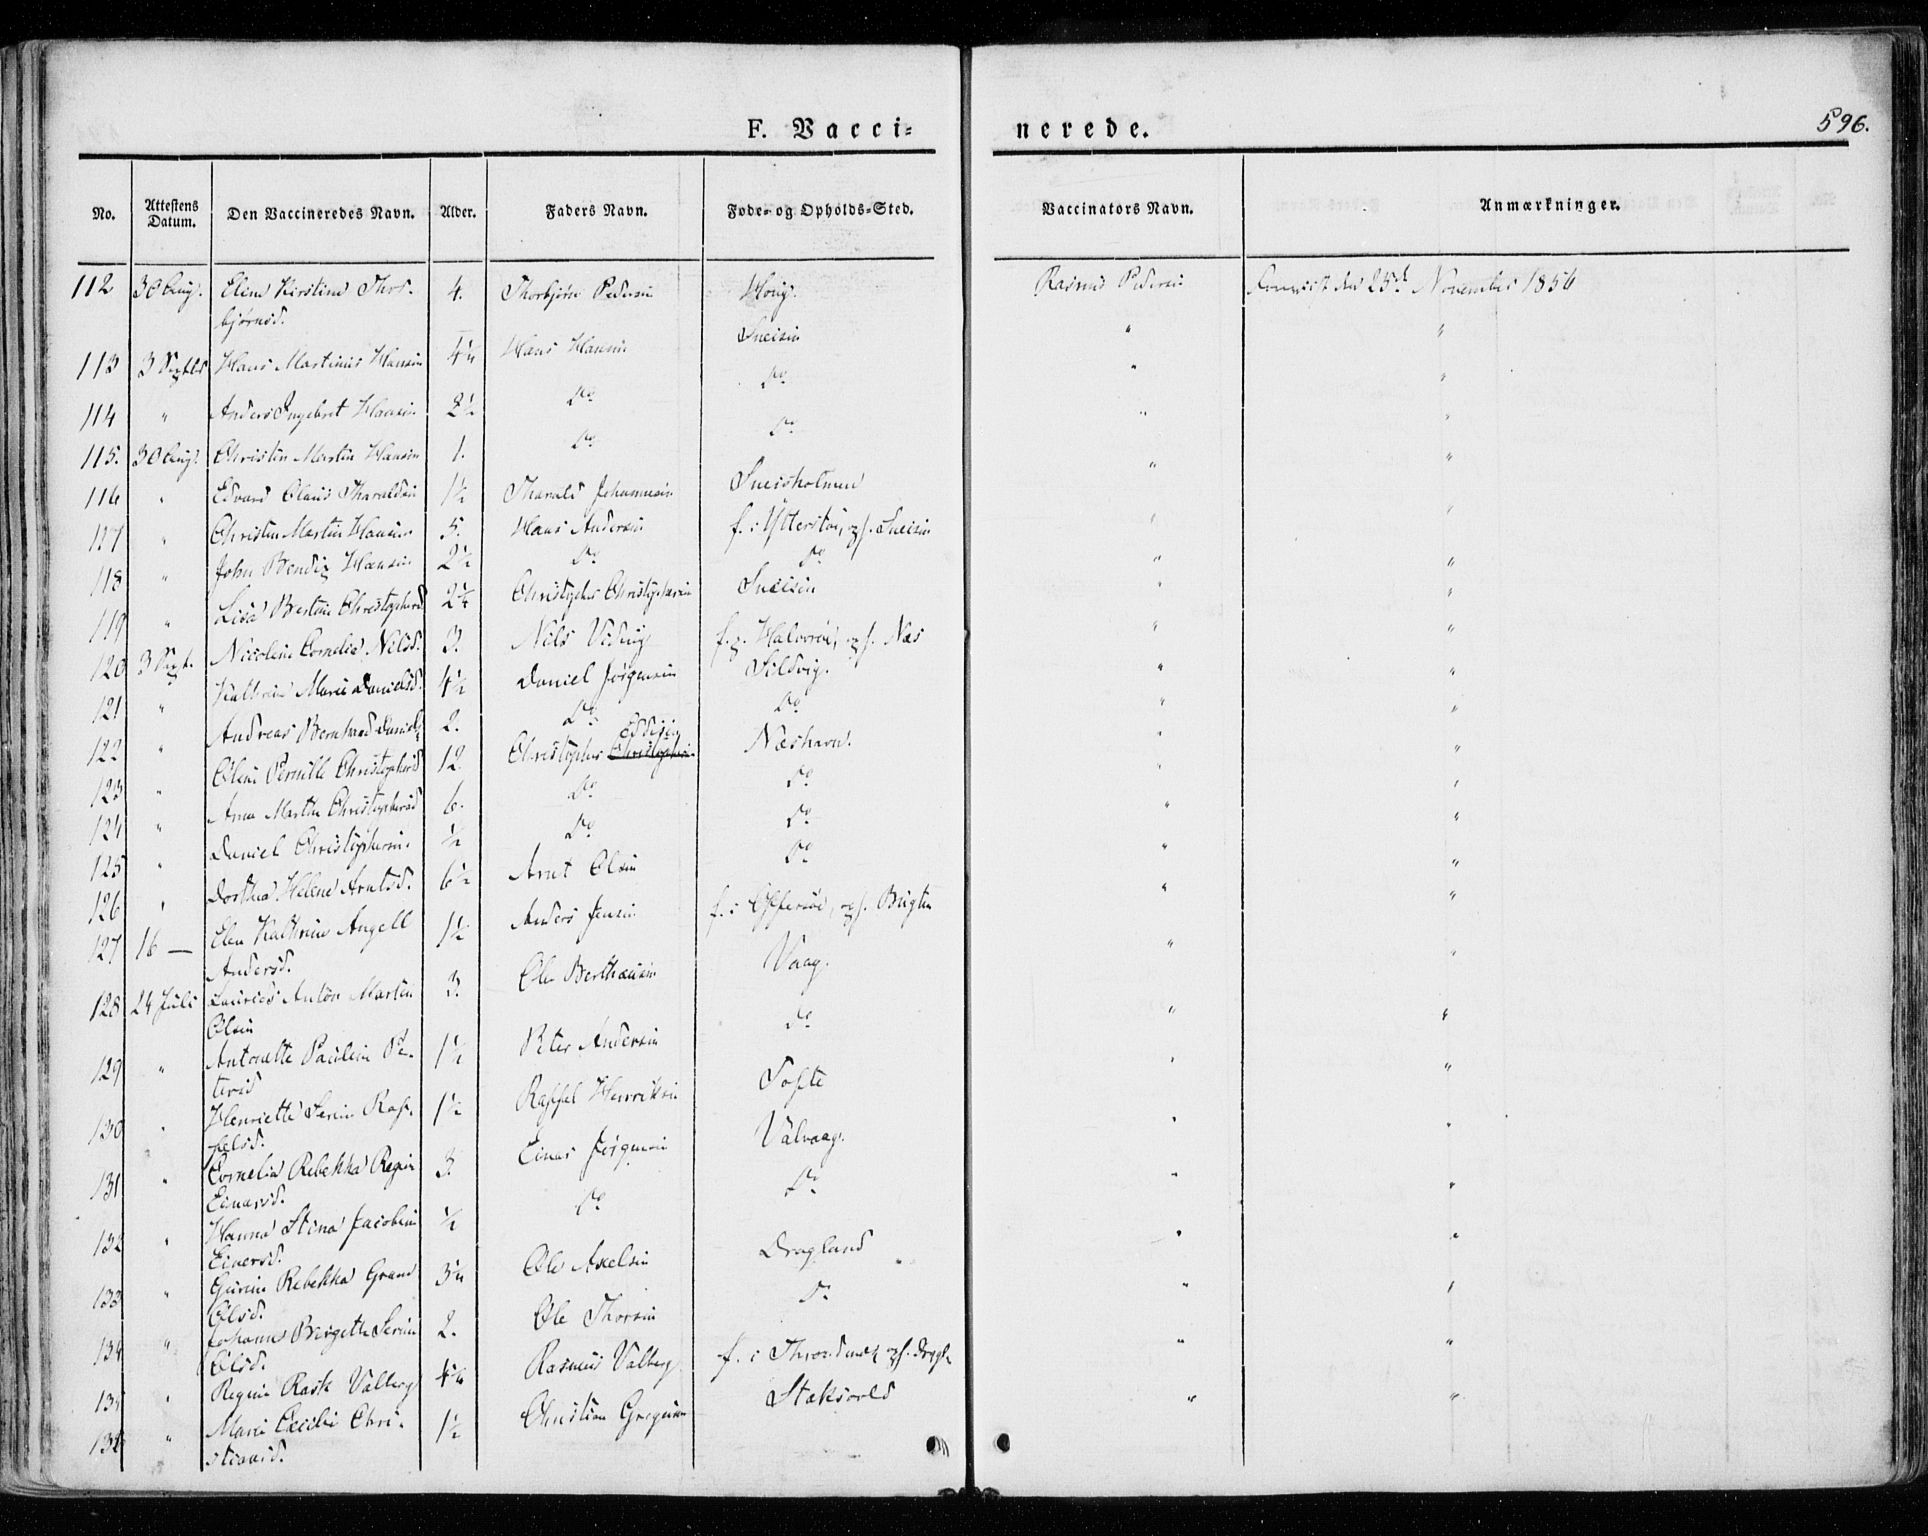 F. Vacci= nerede. 596.
No. Attestens Datum. Den Vaccineredes Navn. Alder. Faders Navn. Føde- og Opholds-Sted. Vaccinators Navn. Anmærkninger.
112 30 Aug. Eline Kirstine Thor- 4. Thorbjørn Pedersen Rasmus Pedersen den 25d November 1854
bjørnsd.
113 3 Hans Martinus Hansen 4¼ Hans Hansen Sneisen " "
114 " Anders Ingebret Hansen 2½ Do Do " "
115. 30 Aug. Christen Martin Hansen 1. Do Do " "
116 " Edvard Claus Tharaldsen 1½ Tharald Johannesen Sneisholmen " "
117 " Christen Martin Hansen 5. Hans Andersen f. i Ytterstøe, Sneisen " "
118 " John Hansen 2½ Do Do " "
119 " Lisa Bertine Christophersd 2¼ Christopher Christophersen Sneisen " "
120 3 Sept. Nicoline Cornelia Nilsd. 3. Nils Næs " "
121 " Kathrine Marie Danielsd. 4½ Daniel Jørgensen Sildvig. " "
122 " Andreas Bernhard Daniels. 2. Do Do " "
Eddisen
123 " Pernille Christophersd 12 Christopher Christophersen Næshavn. " "
124 " Anne Martha Christophersd 6. Do Do " "
125 " Daniel Christophersen. ½ Do Do " "
126 " Dorthea Helene Arntsd. 6½ Arnt Olsen Do " "
127 16 — Elen Kathrine Angell 1½ Anders Jensen f. i Offersøe, " "
Andersd.
128 24 Juli Anton Martin 3. Ole Berthausen Vaag. " "
Olsen
129 " Antonette Pauline Pe- 1½ Peter Andersen Do " "
tersd
130 " Henriette Serine Raf- 1½ Raffel Henriksen Tofte " "
felsd.
131 " Cornelia Rebekka Regine 3. Einar Jørgensen Valvaag. " "
Einarsd.
132 " Hanna Stina Jacobine ½ Do Do " "
Einersd.
133 " Gurine Rebekka Grand 3¼ Ole Axelsen Dragland " "
Olsd.
134 " Johanna Birgethe Serine 2. Ole Thorsen Do " "
Olsd.
135 " Regine Rask Valberg 4¼ Rasmus Valberg " "
136 " Marie Cecilie Chri- 1½ Christian Staksvold " "
stiansd.